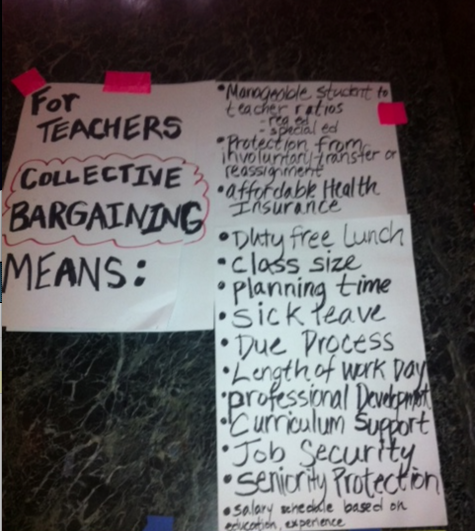 For
TEACHERS
COLLECTIVE
BARGAINING
MEANS:
• Manageable Student to
teacher ratios
- reg ed
- special ed
• Protection from
involuntary transfer or
reassignment
• affordable Health
Insurance
• Duty free Lunch
• Class size
• planning time
• Sick leave
• Due Process
• Length of Work Day
• professional Development
• Curriculum Support
• Job Security
• Seniority Protection
• salary schedule based on
education, experience